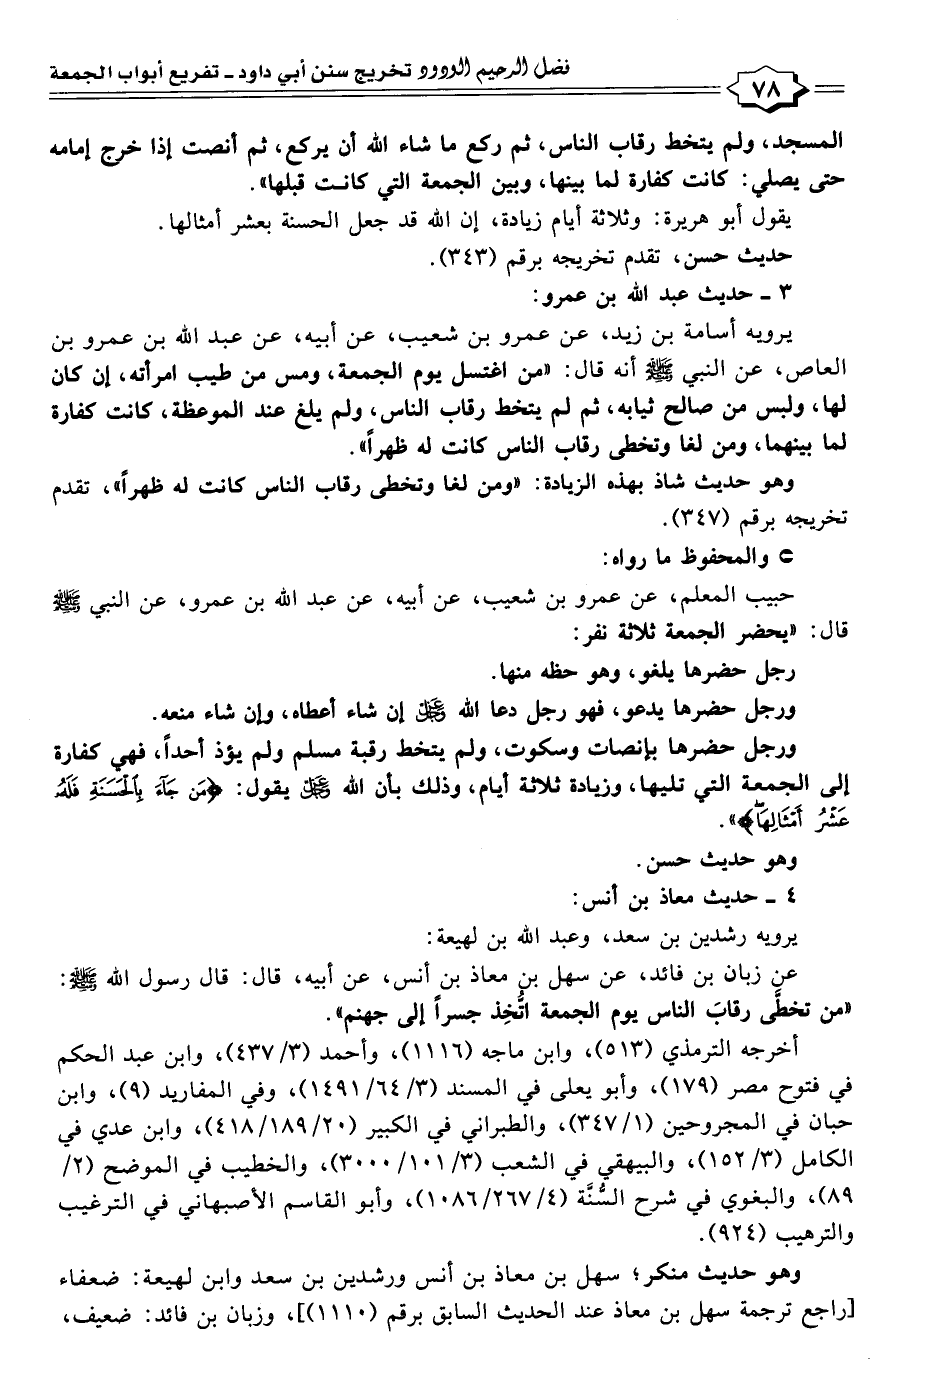 ٧٨
فضل الرحيم الودود تخريج سنن أبي داود ـ تفريع أبواب الجمعة
المسجد، ولم يتخط رقاب الناس، ثم ركع ما شاء الله أن يركع، ثم أنصت إذا خرج إمامه
حتى يصلي: كانت كفارة لما بينها، وبين الجمعة التي كانت قبلها».
يقول أبو هريرة: وثلاثة أيام زيادة، إن الله قد جعل الحسنة بعشر أمثالها.
حديث حسن، تقدم تخريجه برقم (٣٤٣).
٣ ـ حديث عبد الله بن عمرو:
يرويه أسامة بن زيد، عن عمرو بن شعيب، عن أبيه، عن عبد الله بن عمرو بن
العاص، عن النبي ﷺ أنه قال: «من اغتسل يوم الجمعة، ومس من طيب امرأته، إن كان
لها، ولبس من صالح ثيابه، ثم لم يتخط رقاب الناس، ولم يلغ عند الموعظة، كانت كفارة
لما بينهما، ومن لغا وتخطى رقاب الناس كانت له ظهراً».
وهو حديث شاذ بهذه الزيادة: «ومن لغا وتخطى رقاب الناس كانت له ظهراً»، تقدم
تخريجه برقم (٣٤٧).
⊂ والمحفوظ ما رواه:
حبيب المعلم، عن عمرو بن شعيب، عن أبيه، عن عبد الله بن عمرو، عن النبي ﷺ
قال: «يحضر الجمعة ثلاثة نفر:
رجل حضرها يلغو، وهو حظه منها.
ورجل حضرها يدعو، فهو رجل دعا الله ﷿ إن شاء أعطاه، وإن شاء منعه.
ورجل حضرها بإنصات وسكوت، ولم يتخط رقبة مسلم ولم يؤذ أحداً، فهي كفارة
إلى الجمعة التي تليها، وزيادة ثلاثة أيام، وذلك بأن الله ﷿ يقول: ﴿مَن جَآءَ بِٱلْحَسَنَةِ فَلَهُۥ
عَشْرُ أَمْثَالِهَاۖ﴾».
وهو حديث حسن.
٤ ـ حديث معاذ بن أنس:
يرويه رشدين بن سعد، وعبد الله بن لهيعة:
عن زبان بن فائد، عن سهل بن معاذ بن أنس، عن أبيه، قال: قال رسول الله ﷺ:
«من تخطَّى رقابَ الناس يوم الجمعة اتُّخِذ جسراً إلى جهنم».
أخرجه الترمذي (٥١٣)، وابن ماجه (١١١٦)، وأحمد (٣/ ٤٣٧)، وابن عبد الحكم
في فتوح مصر (١٧٩)، وأبو يعلى في المسند (٣/ ٦٤/ ١٤٩١)، وفي المفاريد (٩)، وابن
حبان في المجروحين (١/ ٣٤٧)، والطبراني في الكبير (٢٠/ ١٨٩/ ٤١٨)، وابن عدي في
الكامل (٣/ ١٥٢)، والبيهقي في الشعب (٣/ ١٠١/ ٣٠٠٠)، والخطيب في الموضح (٢/
٨٩)، والبغوي في شرح السُّنَّة (٤/ ٢٦٧/ ١٠٨٦)، وأبو القاسم الأصبهاني في الترغيب
والترهيب (٩٢٤).
وهو حديث منكر؛ سهل بن معاذ بن أنس ورشدين بن سعد وابن لهيعة: ضعفاء
[راجع ترجمة سهل بن معاذ عند الحديث السابق برقم (١١١٠)]، وزبان بن فائد: ضعيف،